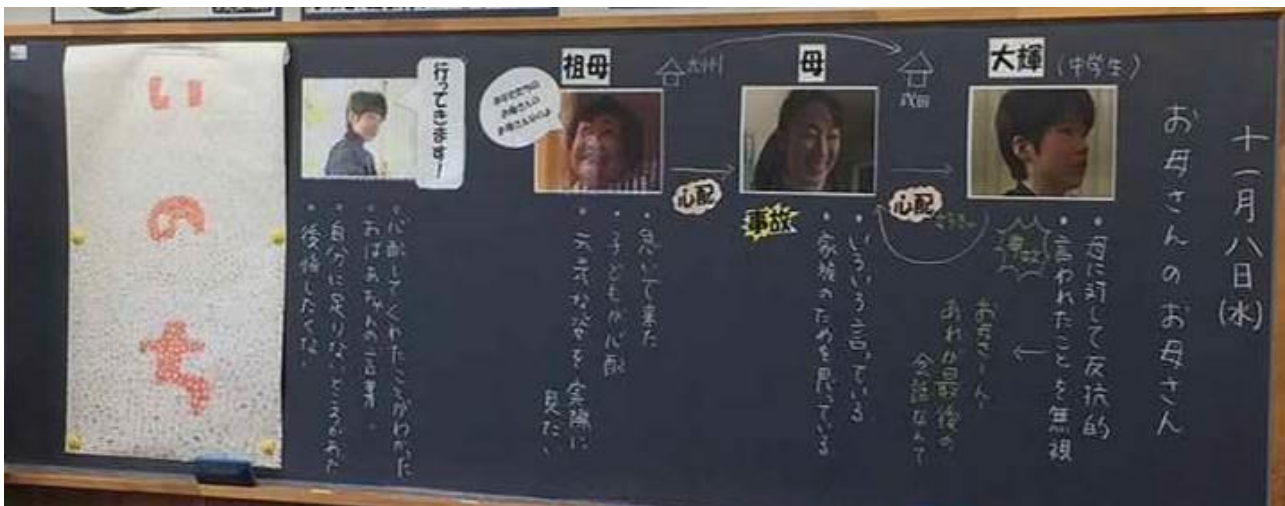 十一月八日(水)
お母さんのお母さん
大輝(中学生)
・母に対して反抗的
・言われたことを無視
事故
お母さーん
あれが最後の
会話なんて
心配
母
・いろいろ言っている
・家族のためを思っている
事故
心配
祖母
九州
あなたたちの
お母さんの
お母さんなのよ
・急いで来た
・子どもが心配
・元気な姿を実際に
見たい
行ってきます!
・心配してくれたことがわかった
・おばあちゃんの言葉
・自分に足りないところがあった
・後悔したくない
いのち